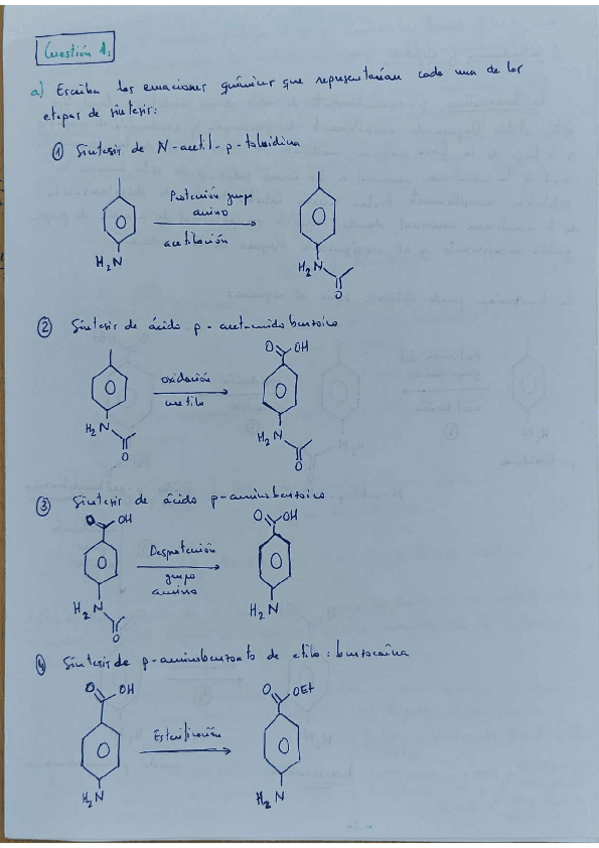 Cuestión 1:
a) Escriba las ecuaciones químicas que representarían cada una de las
etapas de síntesis:
① Síntesis de N-acetil-p-toluidina
Protección grupo
amino
acetilación
H₂N
H₂N
O
② Síntesis de ácido p-acetamidobenzoico
O OH
oxidación
metilo
H₂N
O
H₂N
O
③ Síntesis de ácido p-aminobenzoico
O OH
O OH
Desprotección
grupo
amino
H₂N
O
H₂N
④ Síntesis de p-aminobenzoato de etilo: benzocaína
O OH
O OEt
Esterificación
H₂N
H₂N